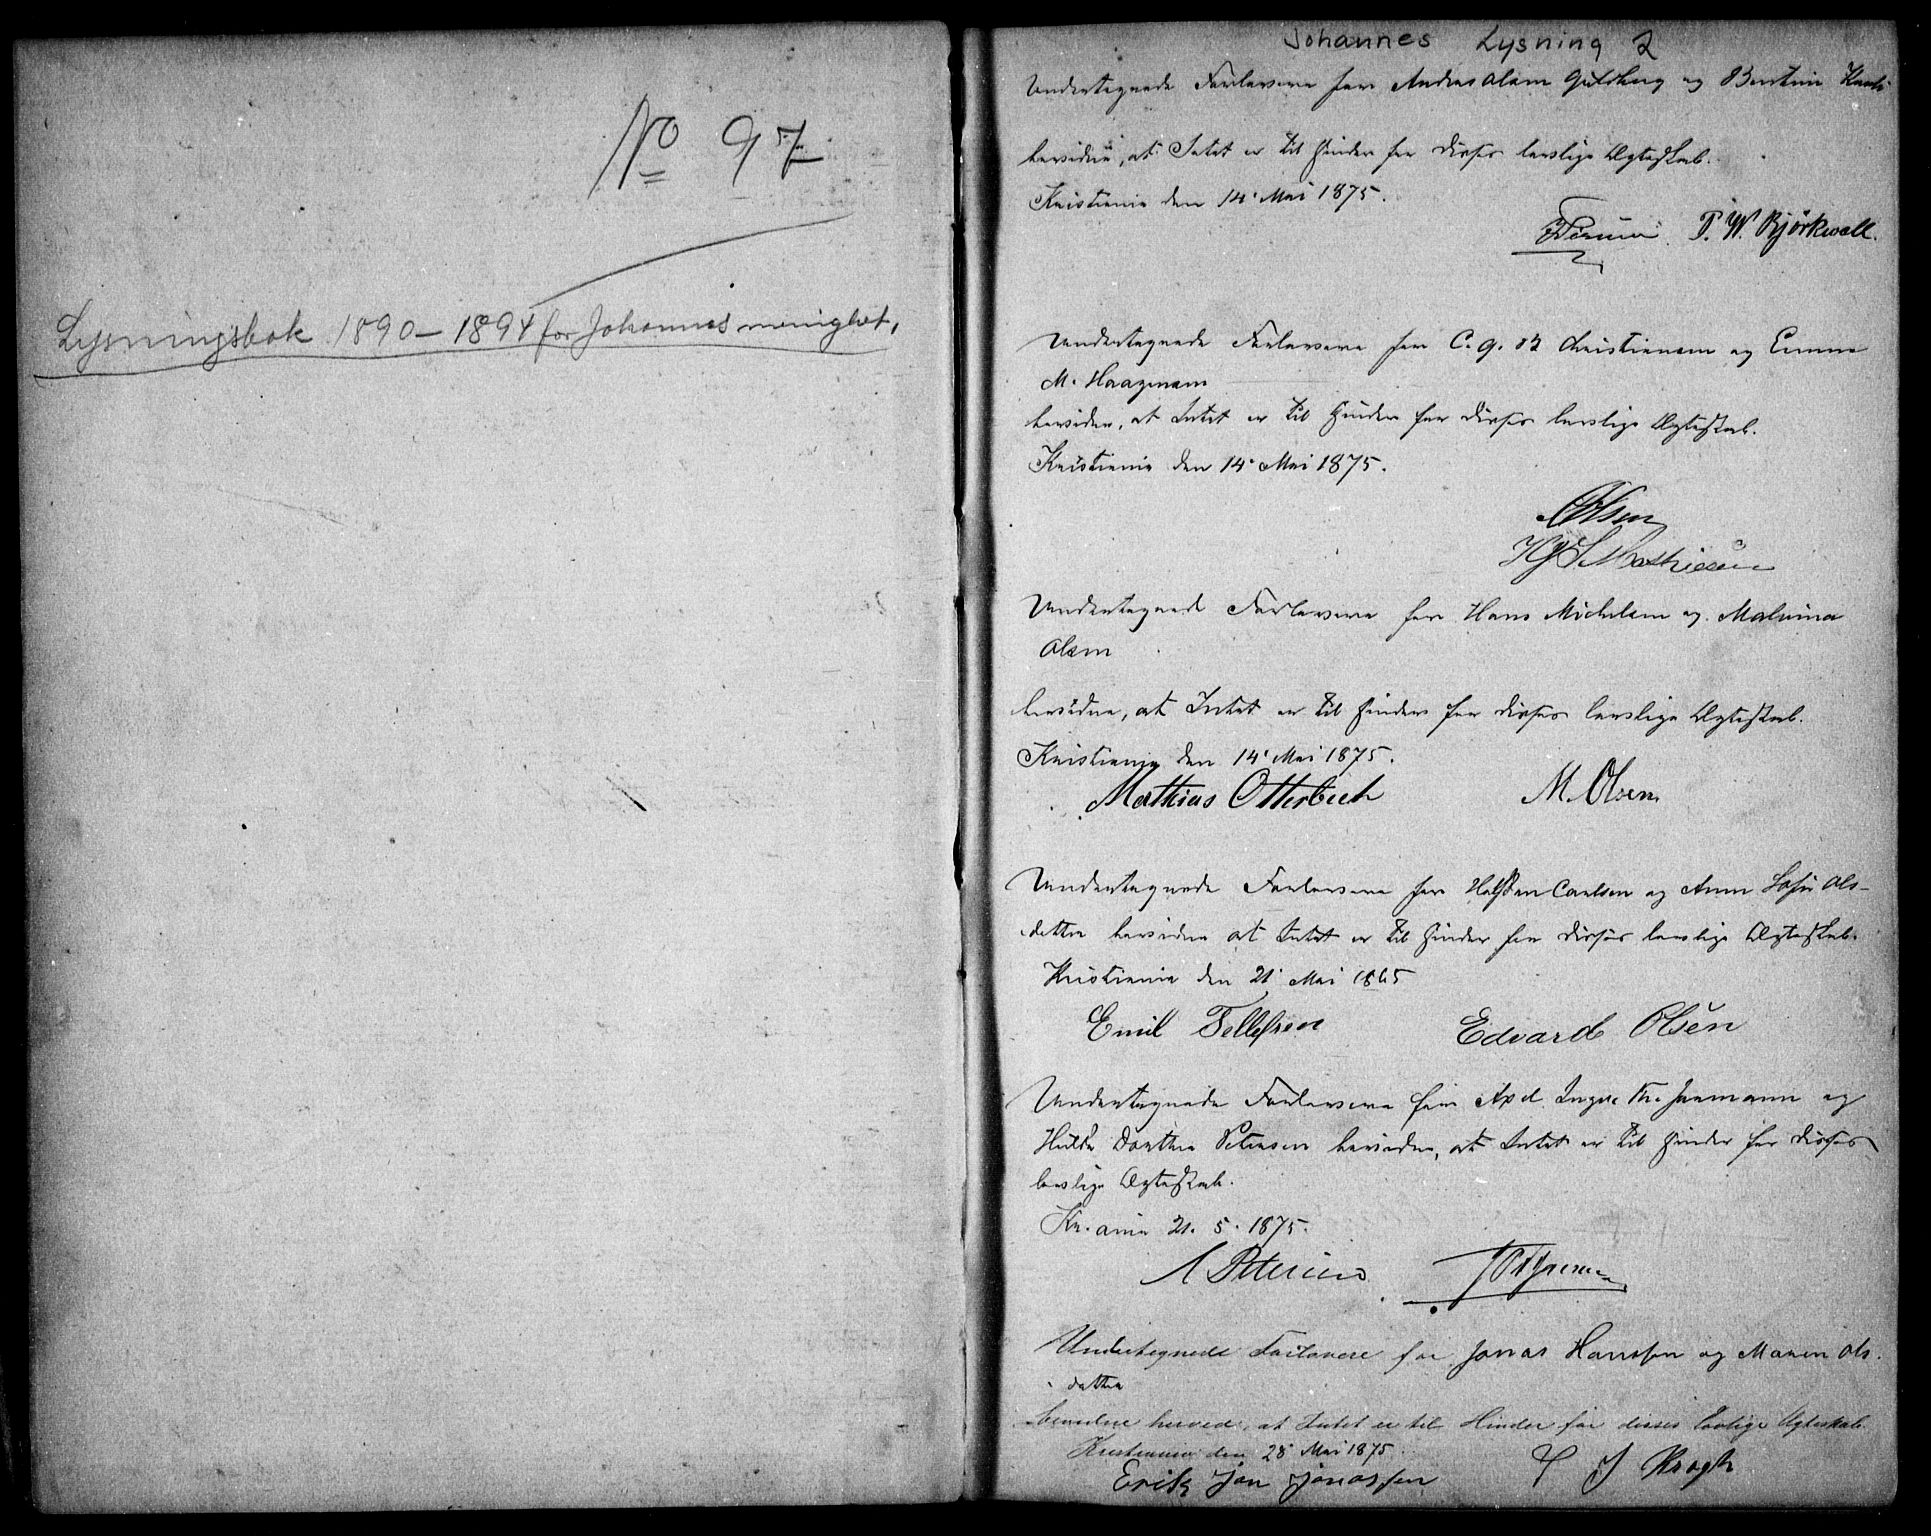 No 97
Lysningsbok 1890–1894 for Johannes menighet,
Johannes Lysning 2
Undertegnede Forlovere for Andreas Olsen Guldberg og Bentine
bevidne, at Intet er til Hinder for disses lovlige Ægteskab.
Kristiania den 14' Mai 1875.
P. W. Björkwall.
Undertegnede Forlovere for C. G. B. Christiansen og Emma
M. Haagmann
bevidne, at Intet er til Hinder for disses lovlige Ægteskab.
Kristiania den 14' Mai 1875.
Olsen
Mathiesen
Undertegnede Forlovere for Hans Michelsen og Malvina
Olsen
bevidne, at Intet er til Hinder for disses lovlige Ægteskab.
Kristiania den 14' Mai 1875.
Mathias Otterbech M. Olsen
Undertegnede Forlovere for Halfdan Carlsen og Anna Sofie Ols-
datter bevidne at Intet er til Hinder for disses lovlige Ægteskab.
Kristiania den 21' Mai 1865
Emil Tellefsen Edvard Olsén
Undertegnede Forlovere for Axel Ingv. Th. Hermann og
Hulda Dorthea Petersen bevidne, at Intet er til Hinder for disses
lovlige Ægteskab.
Kr.ania 21. 5. 1875.
A Petersen
Undertegnede Forlovere for Jonas Hanssen og Maren Ols.
datter
bevidne herved, at Intet er til Hinder for disses lovlige Ægteskab.
Kristiania den 28' Mai 1875.
Erik Jan Jonassen J Krogh